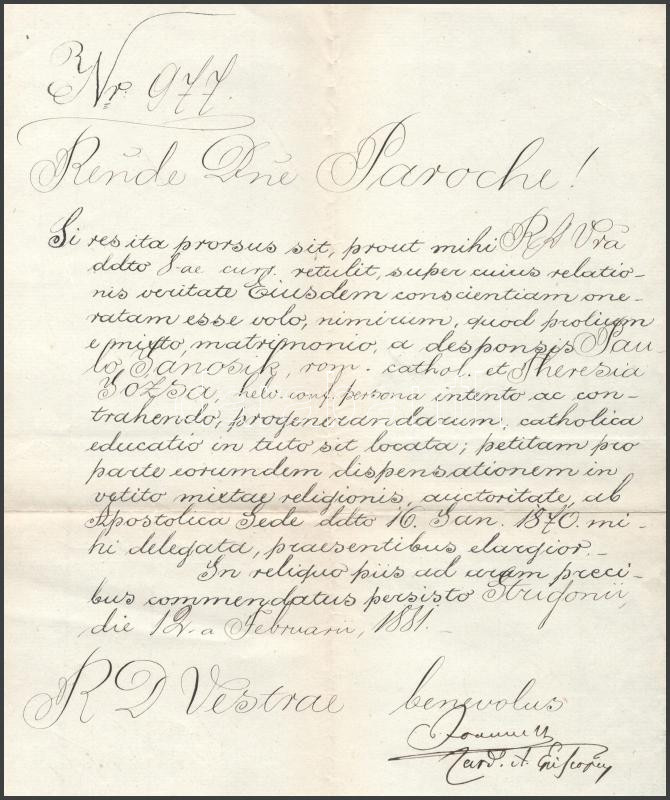 Nr. 977.
Rende Dne Paroche!
Si res ita prorsus sit, prout mihi R D Vra
ddto 8-ae curr. retulit, super cuius relatio-
nis veritate Eiusdem conscientiam one-
ratam esse volo, nimirum, quod prolium
e mixto, matrimonio, a desponsis Pau-
lo Janosik, rom. cathol. et Theresia
Józsa, helv. conf. persona intento ac con-
trahendo, progenerandarum, catholica
educatio in tuto sit locata; petitam pro
parte eorumdem dispensationem in
vetito mixtae religionis, auctoritate, ab
Apostolica Sede ddto 16. Jan. 1870. mi-
hi delegata, praesentibus elargior.-
In reliquo piis ad aram preci-
bus commendatus persisto Strigonii,
die 12-a Februarii, 1881.-
R D Vestrae benevolus
Joannes
Card. A. Episcopus